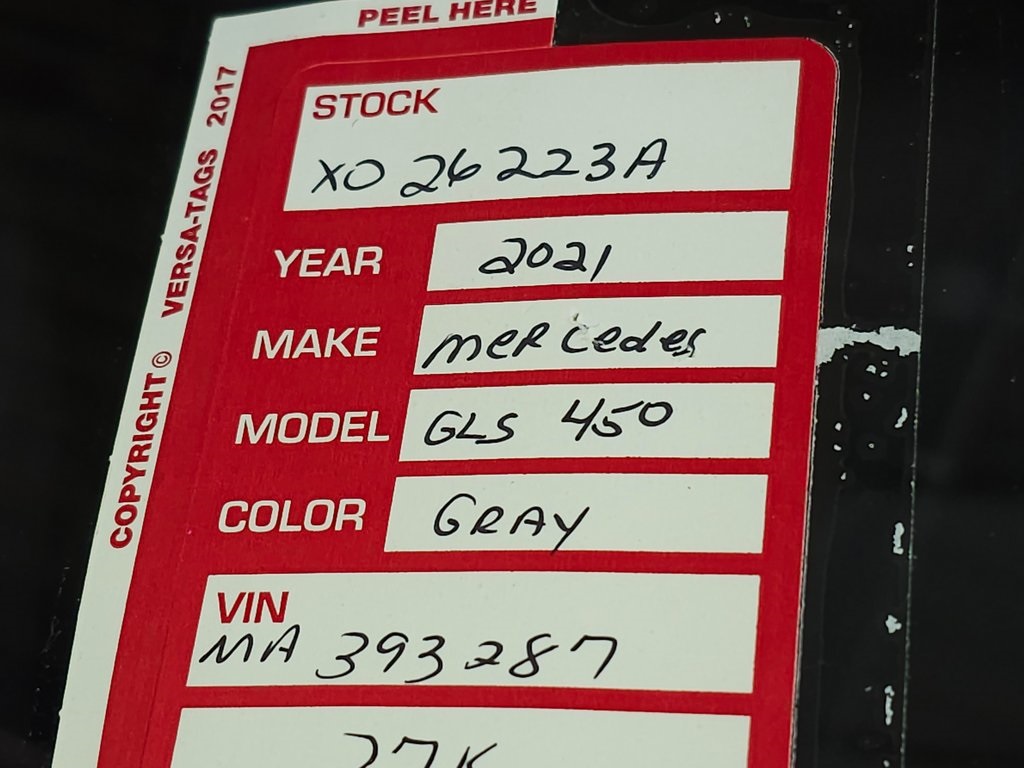 PEEL HERE
COPYRIGHT © VERSA-TAGS 2017
STOCK
XO 26223A
YEAR 2021
MAKE Mercedes
MODEL GLS 450
COLOR GRAY
VIN
MA 393287
27K